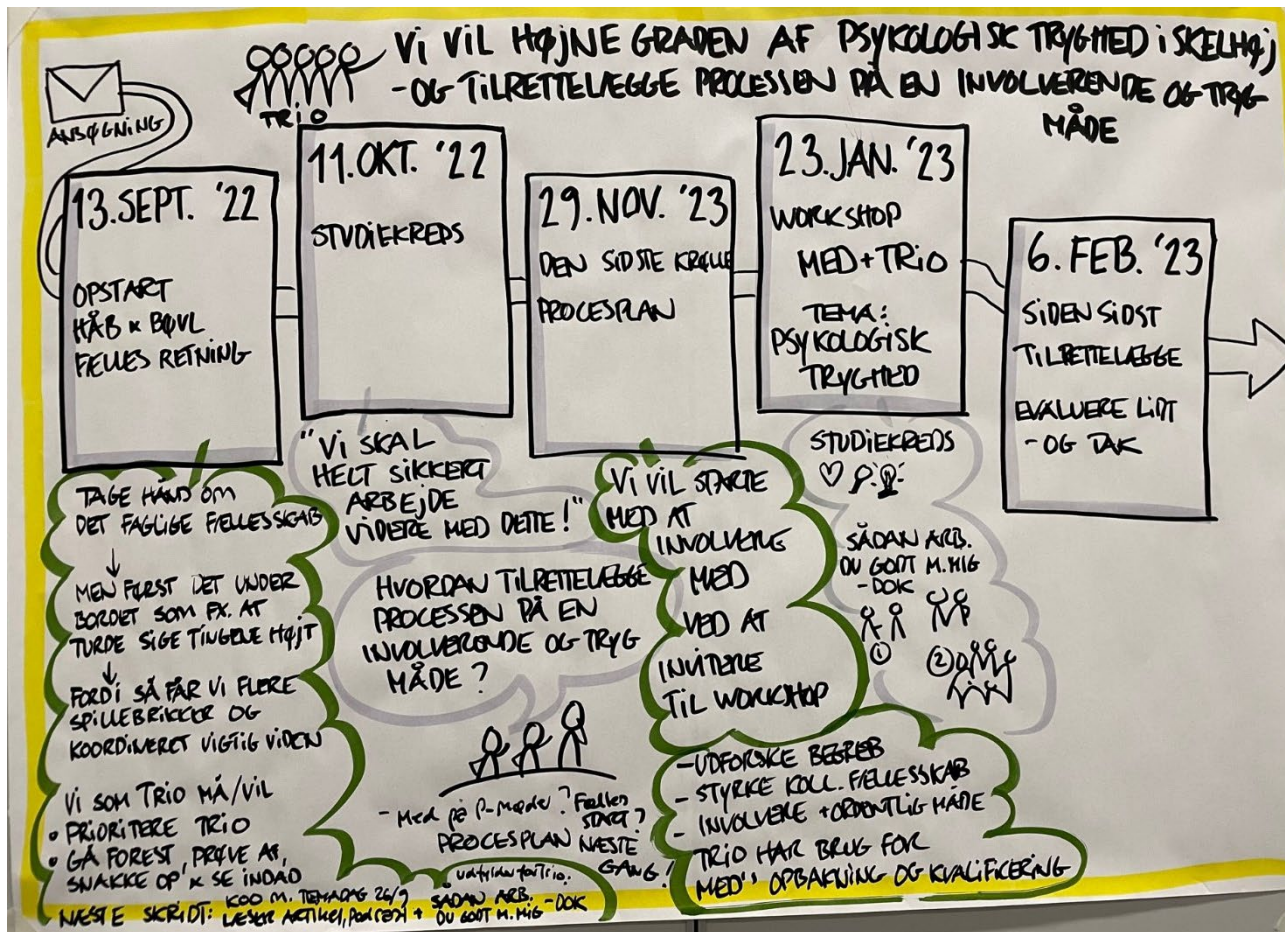 Vi ViL HØJNE GRADEN AF PSYKOLOGISK TRYGHED i SKELHØJ
- OG TiLRETTELÆGGE PROCESSEN PÅ EN INVOLVERENDE OG TRYG
MÅDE
ANSØGNiNG
TRiO
13. SEPT. '22
OPSTART
HÅB & BØVL
FÆLLES RETNiNG
11. OKT. '22
STUDiEKREDS
29. NOV. '23
DEN SIDSTE KRØLLE
PROCESPLAN
23. JAN. '23
WORKSHOP
MED + TRiO
TEMA:
PSYKOLOGISK
TRYGHED
6. FEB. '23
SiDEN SiDST
TiLRETTELÆGGE
EVALUERE LiDT
- OG TAK
TAGE HÅND OM
DET FAGLiGE FÆLLESSKAB
↓
MEN FØRST DET UNDER
BORDET SOM FX. AT
TURDE SiGE TiNGENE HØJT
↓
FORDi SÅ FÅR Vi FLERE
SPiLLEBRiKKER OG
KOORDiNERET ViGTiG ViDEN
Vi SOM TRiO MÅ/ViL
• PRiORiTERE TRiO
• GÅ FOREST, PRØVE AF,
SNAKKE OP' & SE INDAD
NÆSTE SKRiDT: KOO M. TEMADAG 26/9
LÆSER ARTiKEL, Podcast +
udfylder før Trio:
SÅDAN ARB.
DU GODT M. MiG - DOK
"Vi SKAL
HELT SiKKERT
ARBEjDE
ViDERE MED DETTE!"
HVORDAN TiLRETTELÆGGE
PROCESSEN PÅ EN
iNVOLVERENDE OG TRYG
MÅDE?
- Med på P-møder? Fælles
START?
PROCESPLAN NÆSTE
GANG!
Vi ViL STARTE
MED AT
iNVOLVERE
MED
VED AT
iNViTERE
TiL WORKSHOP
- UDFORSKE BEGREB
- STYRKE KOLL. FÆLLESSKAB
- iNVOLVERE + ORDENTLiG MÅDE
- TRiO HAR BRUG FOR
MED'' OPBAKNiNG OG KVALiFiCERiNG
STUDiEKREDS
SÅDAN ARB.
DU GODT M. MiG
- DOK
1
2